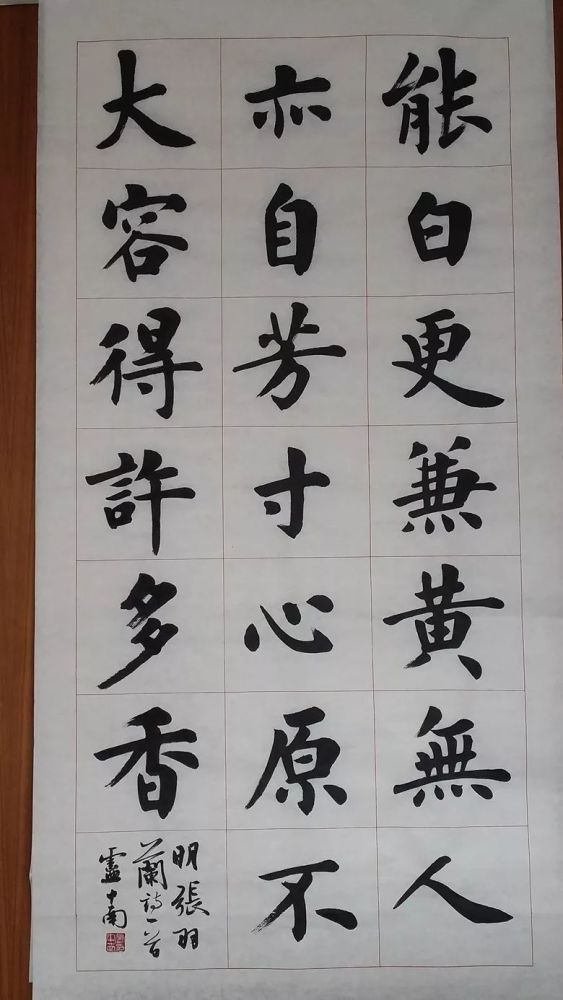 能白更兼黃無人
亦自芳寸心原不
大容得許多香
明張羽
蘭詩一首